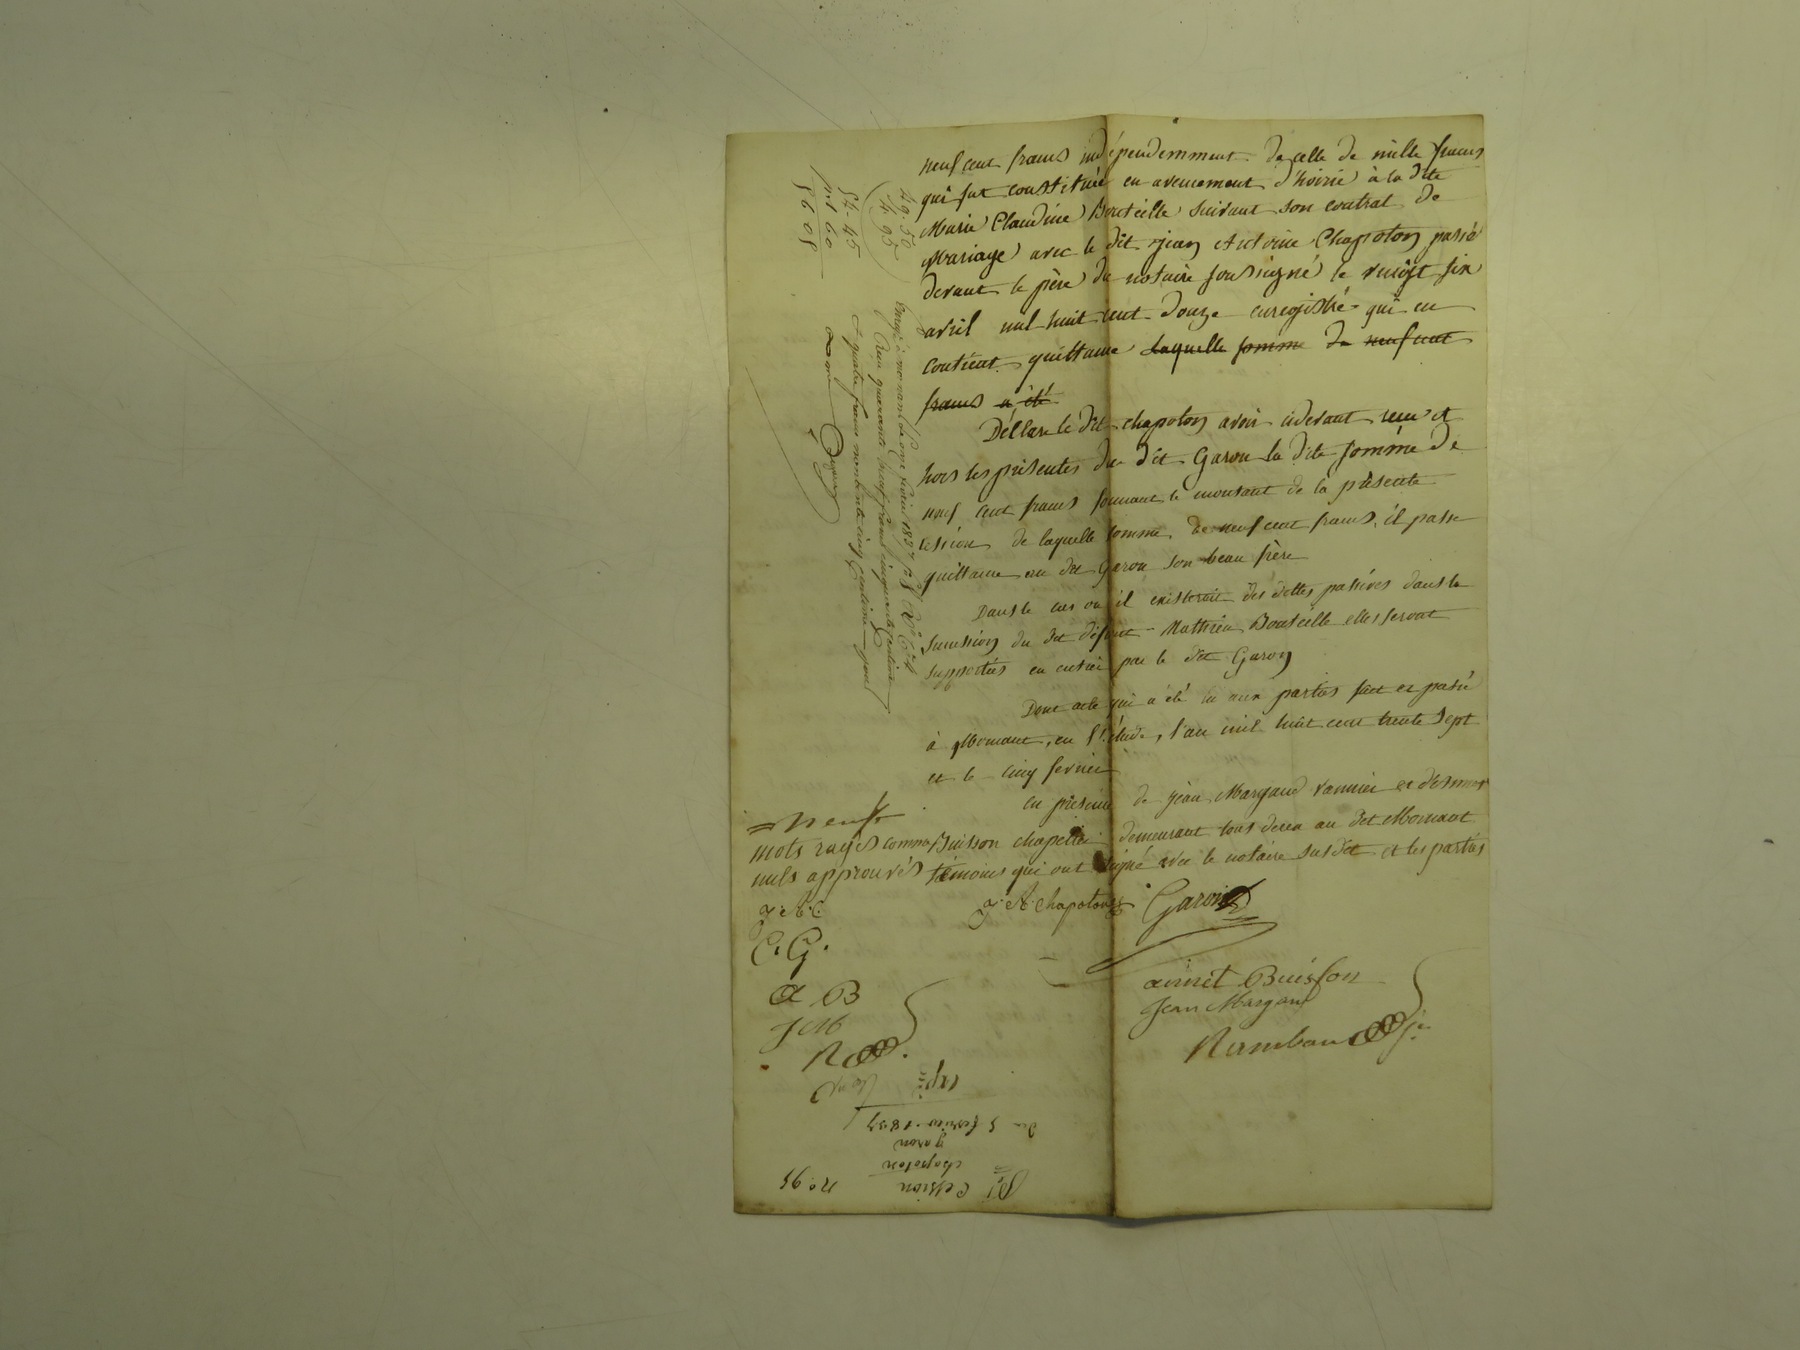 neuf cent francs indépendemment de celle de mille francs
qui fut constituée en avencement d'hoirie à la dite
Marie Claudine Bouteille suivant son contrat de
Mariage avec le dit jean Antoine Chapoton passé
devant le père du notaire soussigné le vingt six
avril mil huit cent douze enregistré qui en
contient quittance laquelle somme de neuf cent
francs a été
Déclare le dit chapoton avoir cidevant recu et
hors les présentes du dit Garon la dite somme de
neuf cent francs formant le montant de la présente
cession de laquelle somme de neuf cent francs, il passe
quittance au dit Garon son beau frère
Dans le cas ou il existeroit des dettes passives dans la
succession du dit défunt Mathieu Bouteille elles seront
supportées en entier par le dit Garon
Dont acte qui a été lu aux parties fait et passé
à Mornant, en l'étude, l'an mil huit cent trente sept
et le cinq fevrier
en présence de jean Margaud vannier et d'
Buisson chapelier demeurant tous deux au dit Mornant
témoins qui ont signé avec le notaire susdit et les parties
= neuf
mots rayés comme
nuls approuvés
J. A. C.
C. G.
a B
J M
R
J. A. chapoton Garon
aimét Buisson
Jean Margaud
Rambaud
49. 50
4. 95
54. 45
1 60
56 05
Enregé à mornant le onze fevrier 1837
Recu quarante neuf francs cinquante centimes
& quatre francs nonante cinq centimes pour
no 95
Cession
chapoton
garon
du 5 fevrier 1837
expé